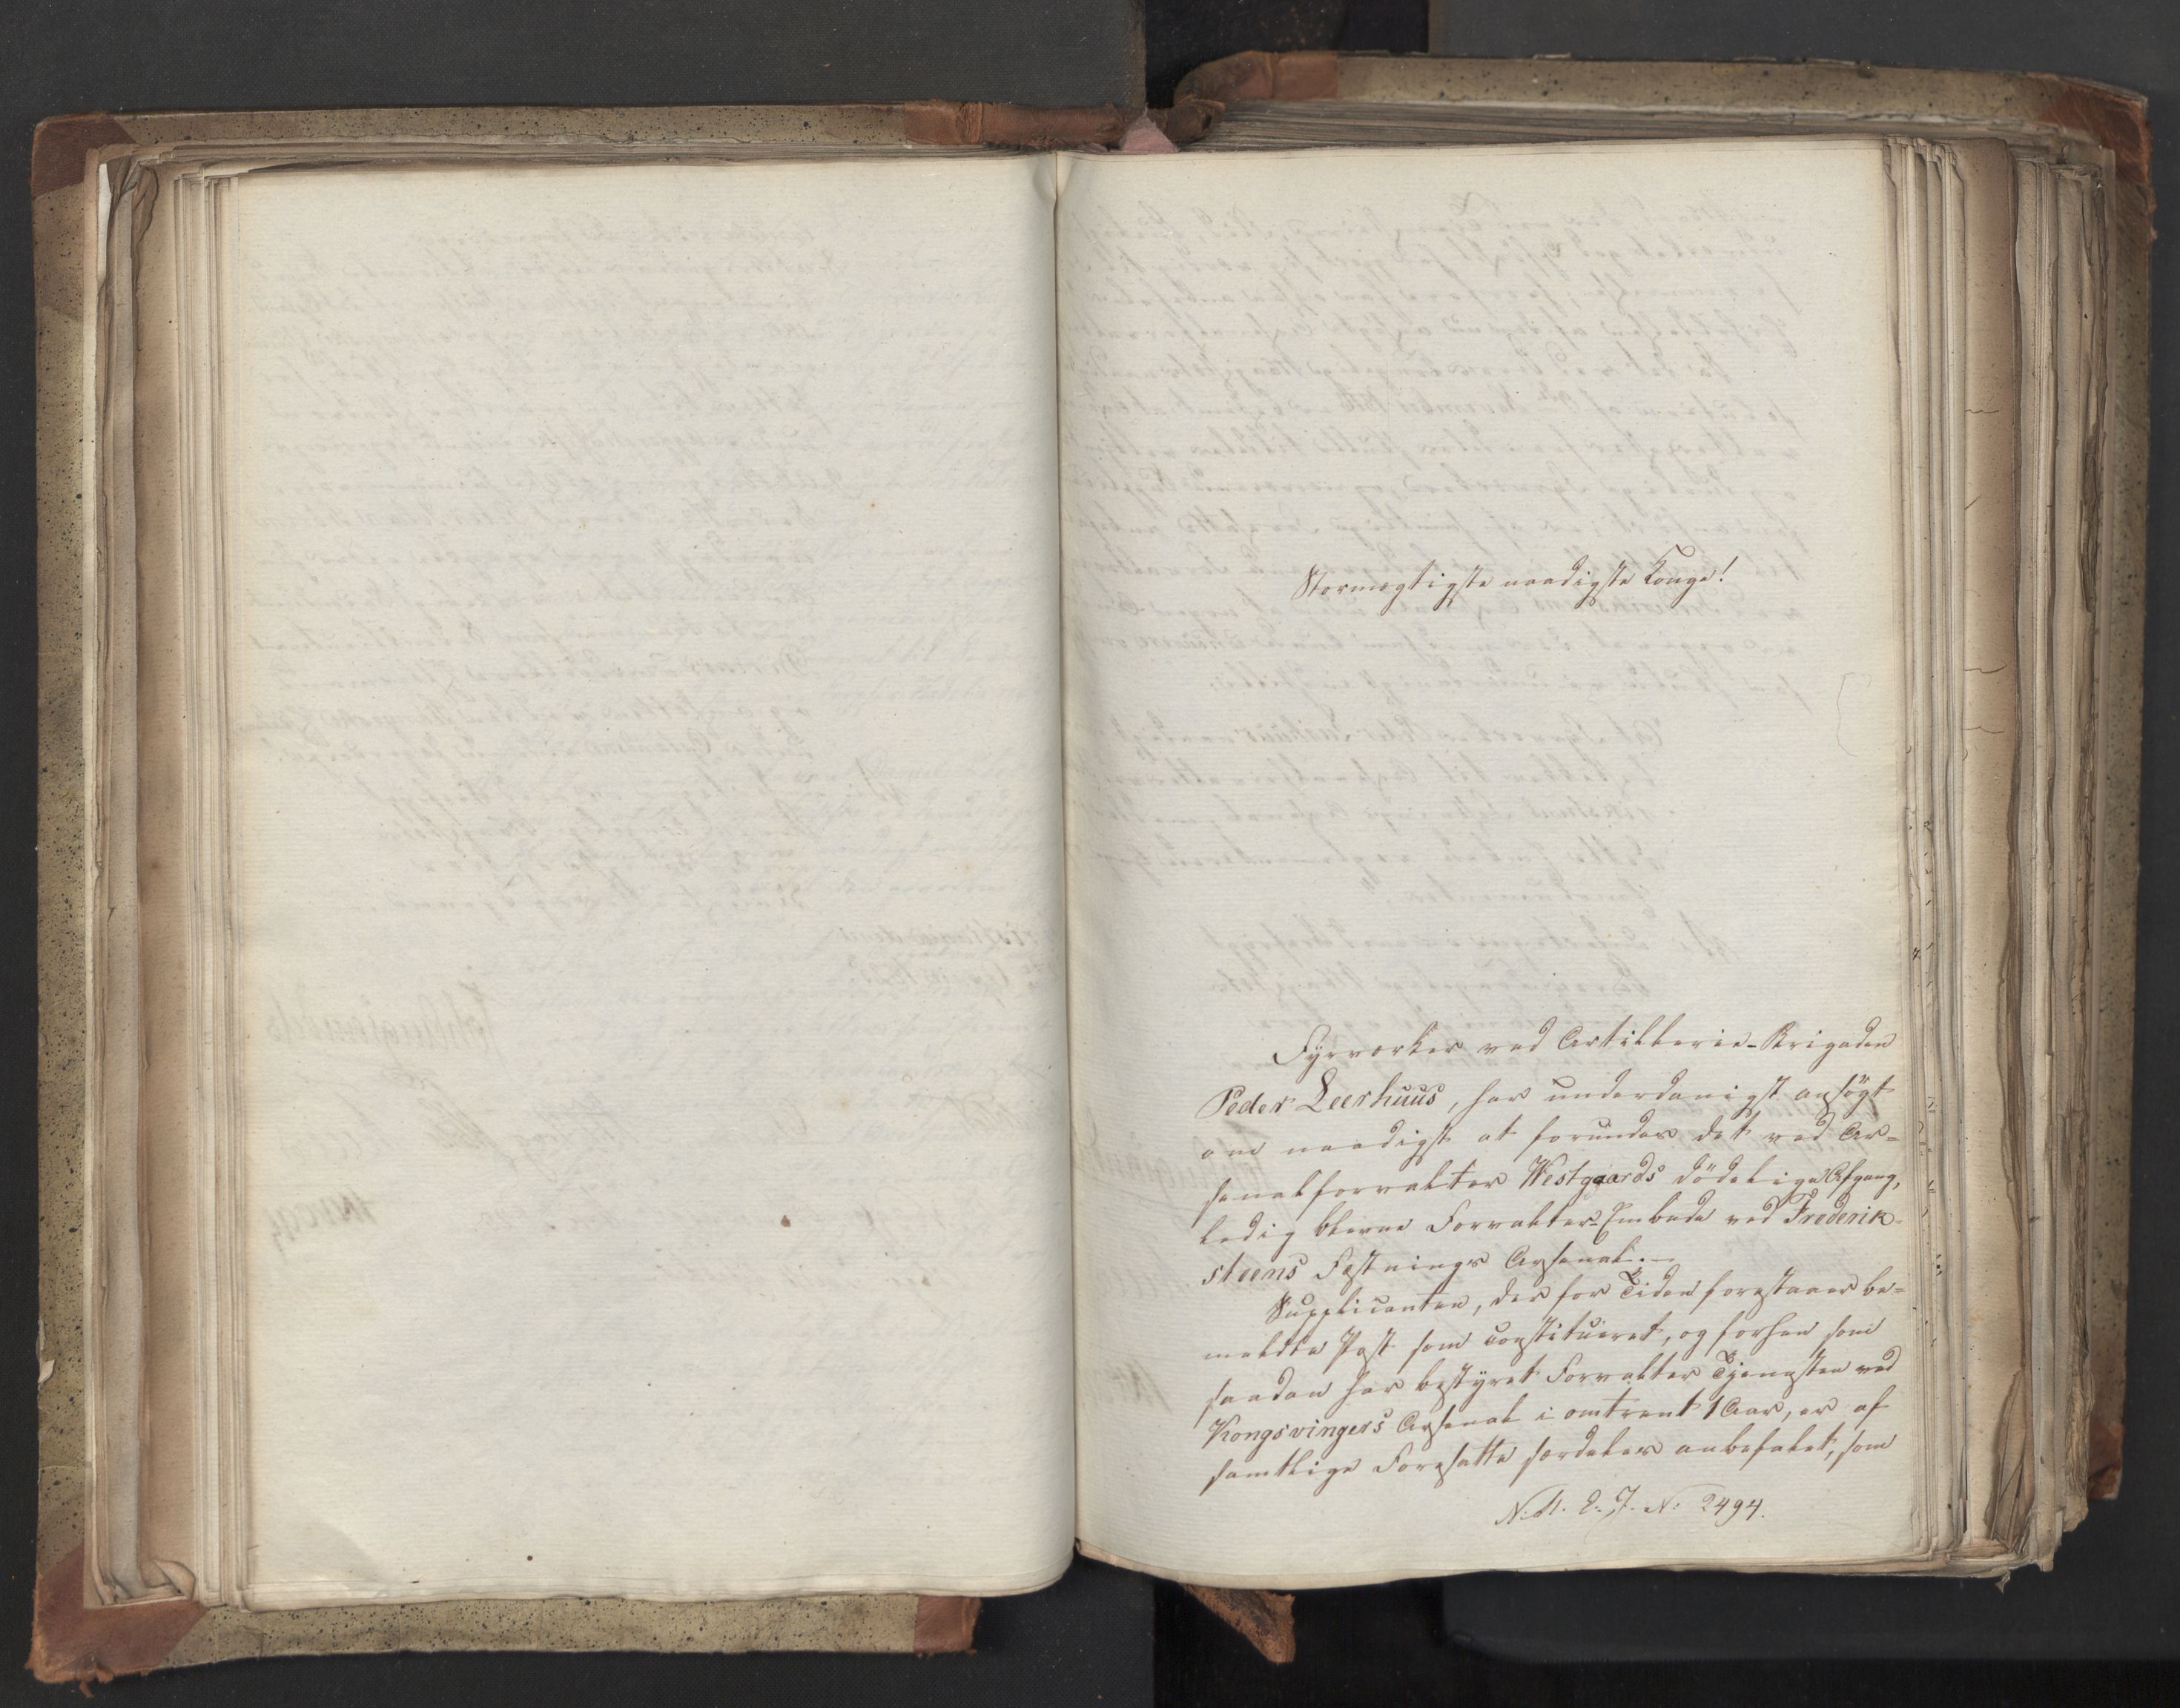 Stormægtigste naadigste Konge!
Fyrværker ved Artillerie-Brigaden
Peder Leerhuus, har underdanigst ansögt
om naadigst at forundes det ved Ar=
senalforvalter Westgaards dödelige Afgang,
ledig blevne Forvalter-Embede ved Frederik-
steens Fæstnings Arsenal.—
Supplicanten, der for Tiden forestaaer be=
meldte Post som constitueret, og forhen som
saadan har bestyret Forvalter Tjenesten ved
Kongsvingers Arsenal i omtrent 1 Aar, er af
samtlige Foresatte særdeles anbefalet, som
2494.